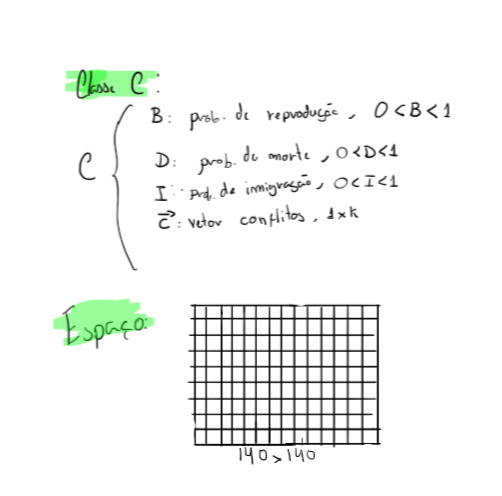 Classe C:
C
B: prob. de reprodução, 0<B<1
D: prob. de morte, 0<D<1
I: prob. de imigração, 0<I<1
C⃗: vetor conflitos, 1xk
Espaço:
140x140